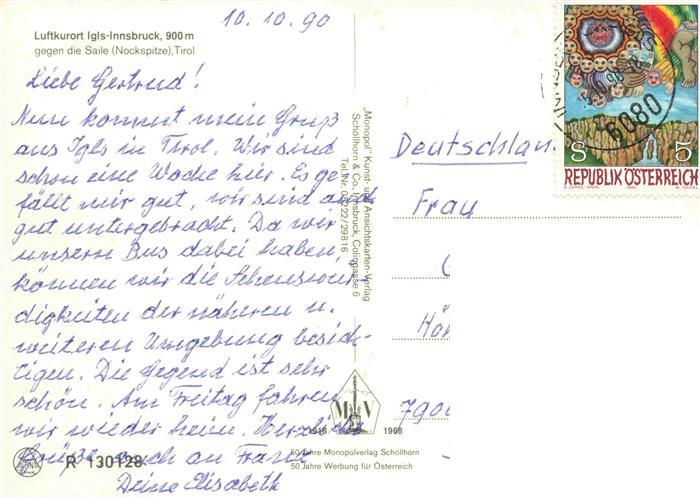 10.10.90
Luftkurort Igls-Innsbruck, 900 m
gegen die Saile (Nockspitze), Tirol
Liebe Gertrud!
Nun kommt mein Gruß
aus Igls in Tirol. Wir sind
schon eine Woche hier. Es ge-
fällt mir gut, wir sind auch
gut untergebracht. Da wir
unsern Bus dabei haben,
können wir die Sehenswür-
digkeiten der näheren u.
weiteren Umgebung besich-
tigen. Die Gegend ist sehr
schön. Am Freitag fahren
wir wieder heim. Herzliche
Grüße auch an Frank
Deine Elisabeth
R 130128
„Monopol" Kunst- und Ansichtskarten-Verlag
Schöllhorn & Co., Innsbruck, Colingasse 6
Tel. Nr. 05222/29816
MV
1918 1968
50 Jahre Monopolverlag Schöllhorn
50 Jahre Werbung für Österreich
Deutschlan
Frau
Hö
790
6080
S 5
REPUBLIK ÖSTERREICH